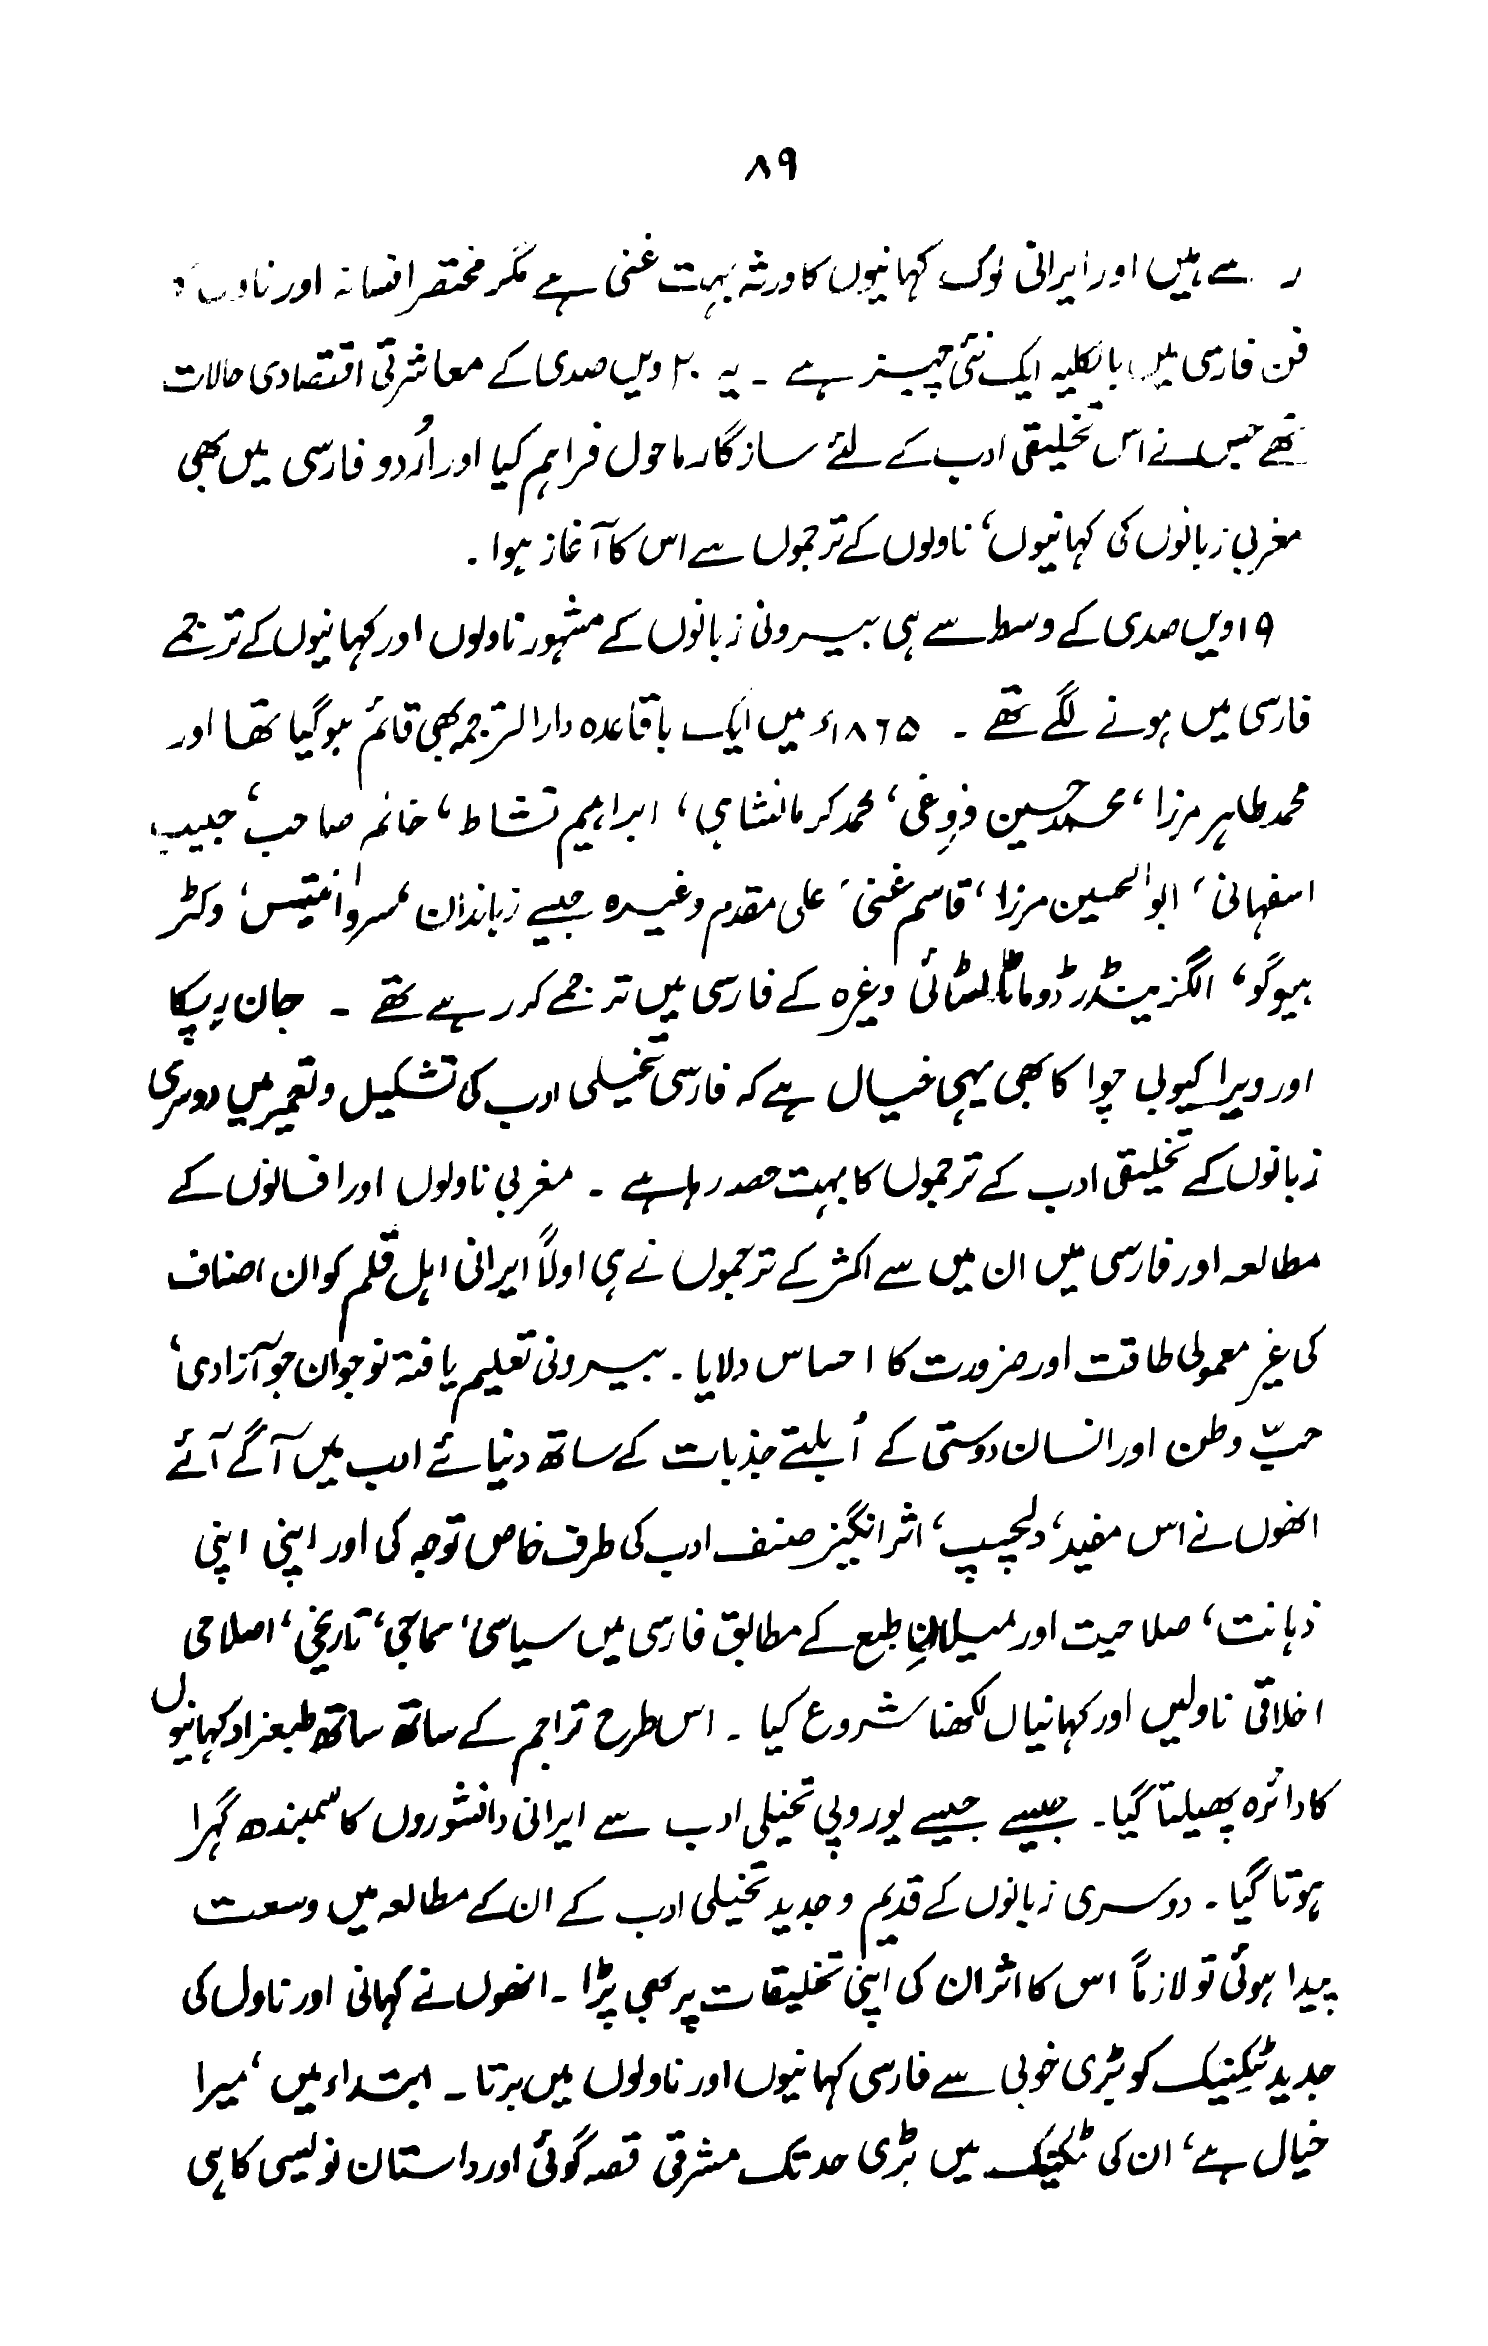 ۸۹
سے ہیں اور ایرانی لوک کہانیوں کا ورثہ بہت غنی ہے مگر مختصر افسانہ اور ناول
فن فارسی میں بالکلیہ ایک نئی چیز ہے ۔ یہ ۲۰ ویں صدی کے معاشرتی اقتصادی حالات
تھے جس نے اس تخلیقی ادب کے لئے سازگار ماحول فراہم کیا اور اُردو فارسی میں بھی
مغربی زبانوں کی کہانیوں، ناولوں کے ترجموں سے اس کا آغاز ہوا ۔
۱۹ ویں صدی کے وسط سے ہی بیرونی زبانوں کے مشہور ناولوں اور کہانیوں کے ترجمے
فارسی میں ہونے لگے تھے ۔ ۱۸۶۵ء میں ایک باقاعدہ دارالترجمہ بھی قائم ہوگیا تھا اور
محمد طاہر مرزا، محمد حسین فروغی، محمد کرمانشاہی، ابراہیم نشاط، خانم صاحب، حبیب
اصفہانی، ابوالحسین مرزا، قاسم غنی، علی مقدم وغیرہ جیسے زباندان سروانتیس، وکٹر
ہیوگو، الگزینڈر ڈوما ٹالسٹائی وغیرہ کے فارسی میں ترجمے کررہے تھے ۔ جان رپیکا
اور ویرا کیوبی چوا کا بھی یہی خیال ہے کہ فارسی تخیلی ادب کی تشکیل و تعمیر میں دوسری
زبانوں کے تخلیقی ادب کے ترجموں کا بہت حصہ رہا ہے ۔ مغربی ناولوں اور افسانوں کے
مطالعہ اور فارسی میں ان میں سے اکثر کے ترجموں نے ہی اولاً ایرانی اہل قلم کو ان اصناف
کی غیر معمولی طاقت اور ضرورت کا احساس دلایا ۔ بیرونی تعلیم یافتہ نوجوان جو آزادی،
حبّ وطن اور انسان دوستی کے اُبلتے جذبات کے ساتھ دنیائے ادب میں آگے آئے
انھوں نے اس مفید، دلچسپ، اثر انگیز صنف ادب کی طرف خاص توجہ کی اور اپنی اپنی
ذہانت، صلاحیت اور میلانِ طبع کے مطابق فارسی میں سیاسی، سماجی، تاریخی، اصلاحی
اخلاقی ناولیں اور کہانیاں لکھنا شروع کیا ۔ اس طرح تراجم کے ساتھ ساتھ طبعزاد کہانیوں
کا دائرہ پھیلتا گیا۔ جیسے جیسے یوروپی تخیلی ادب سے ایرانی دانشوروں کا سمبندھ گہرا
ہوتا گیا ۔ دوسری زبانوں کے قدیم و جدید تخیلی ادب کے ان کے مطالعہ میں وسعت
پیدا ہوئی تو لازماً اس کا اثر ان کی اپنی تخلیقات پر بھی پڑا ۔ انھوں نے کہانی اور ناول کی
جدید ٹیکنیک کو بڑی خوبی سے فارسی کہانیوں اور ناولوں میں برتا ۔ ابتداء میں، میرا
خیال ہے، ان کی ٹکنیک میں بڑی حد تک مشرقی قصہ گوئی اور داستان نویسی کا ہی